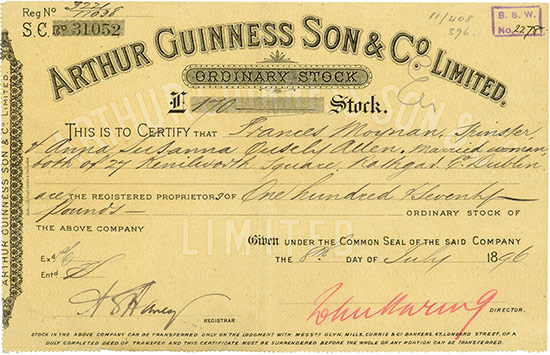 Reg No 3221
11038
S.C. No 31052
11/408
396
B. S. W.
No. 2278
ARTHUR GUINNESS SON & Co. LIMITED.
ORDINARY STOCK
£ 170 Stock.
THIS IS TO CERTIFY THAT Frances Moynan, Spinster
& Anna Susanna Ousely Allen, Married woman
both of 27 Kenilworth Square, Rathgar Co. Dublin
are THE REGISTERED PROPRIETORS OF One hundred & Seventy
Pounds — ORDINARY STOCK OF
THE ABOVE COMPANY
Given UNDER THE COMMON SEAL OF THE SAID COMPANY
THE 8th DAY OF July 1896
Exd
Entd
REGISTRAR.
DIRECTOR.
STOCK IN THE ABOVE COMPANY CAN BE TRANSFERRED ONLY ON THE LODGMENT WITH MESSRS GLYN, MILLS, CURRIE & Co BANKERS, 67, LOMBARD STREET, OF A
DULY COMPLETED DEED OF TRANSFER AND THIS CERTIFICATE MUST BE SURRENDERED BEFORE THE WHOLE OR ANY PORTION CAN BE TRANSFERRED.
ARTHUR GUINNESS SON & Co. LIMITED.
ARTHUR GUINNESS SON & Co.
LIMITED